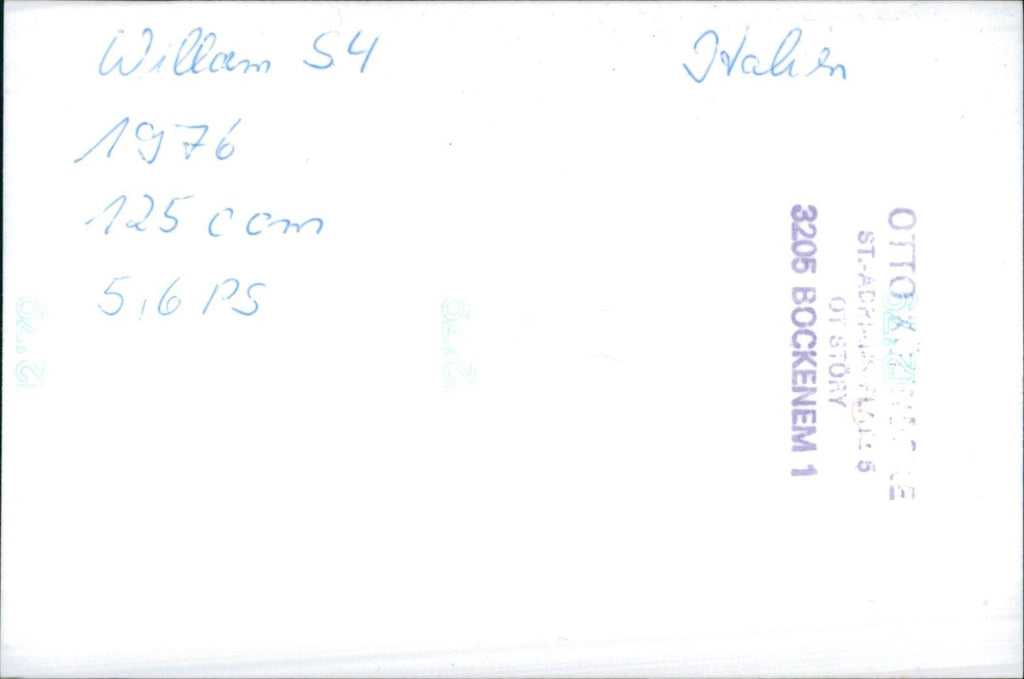 Willam S4
Italien
1976
125 ccm
5,6 PS
OTTO
ST.-ADRIAN-PLATZ 5
OT STÖRY
3205 BOCKENEM 1